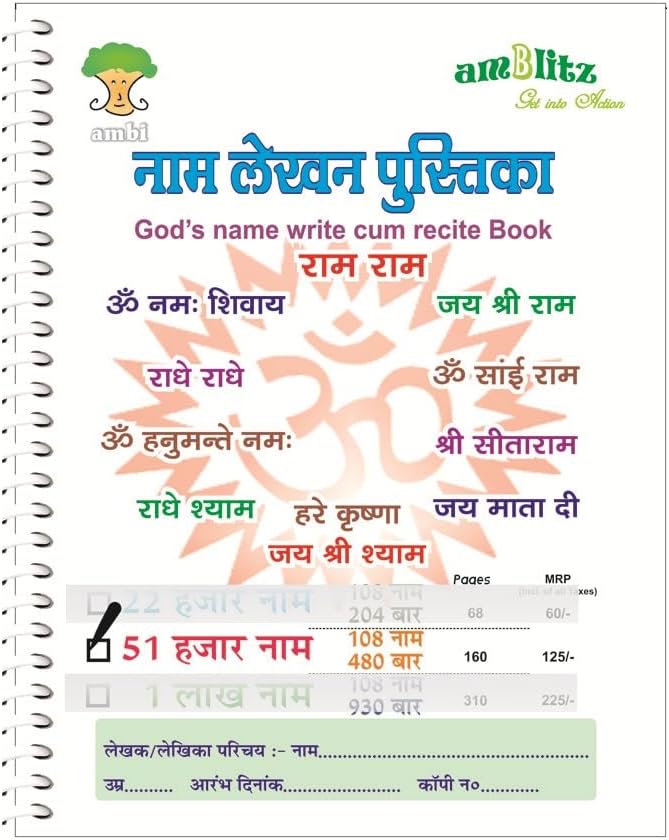 ambi
amBlitz
Get into Action
नाम लेखन पुस्तिका
God's name write cum recite Book
राम राम
ॐ नमः शिवाय
जय श्री राम
राधे राधे
ॐ सांई राम
ॐ हनुमन्ते नमः
श्री सीताराम
राधे श्याम
हरे कृष्णा
जय माता दी
जय श्री श्याम
Pages MRP
(Incl. of all Taxes)
22 हजार नाम 108 नाम 204 बार 68 60/-
51 हजार नाम 108 नाम 480 बार 160 125/-
1 लाख नाम 108 नाम 930 बार 310 225/-
लेखक/लेखिका परिचय :- नाम..........................................................
उम्र.......... आरंभ दिनांक........................ कॉपी न०............